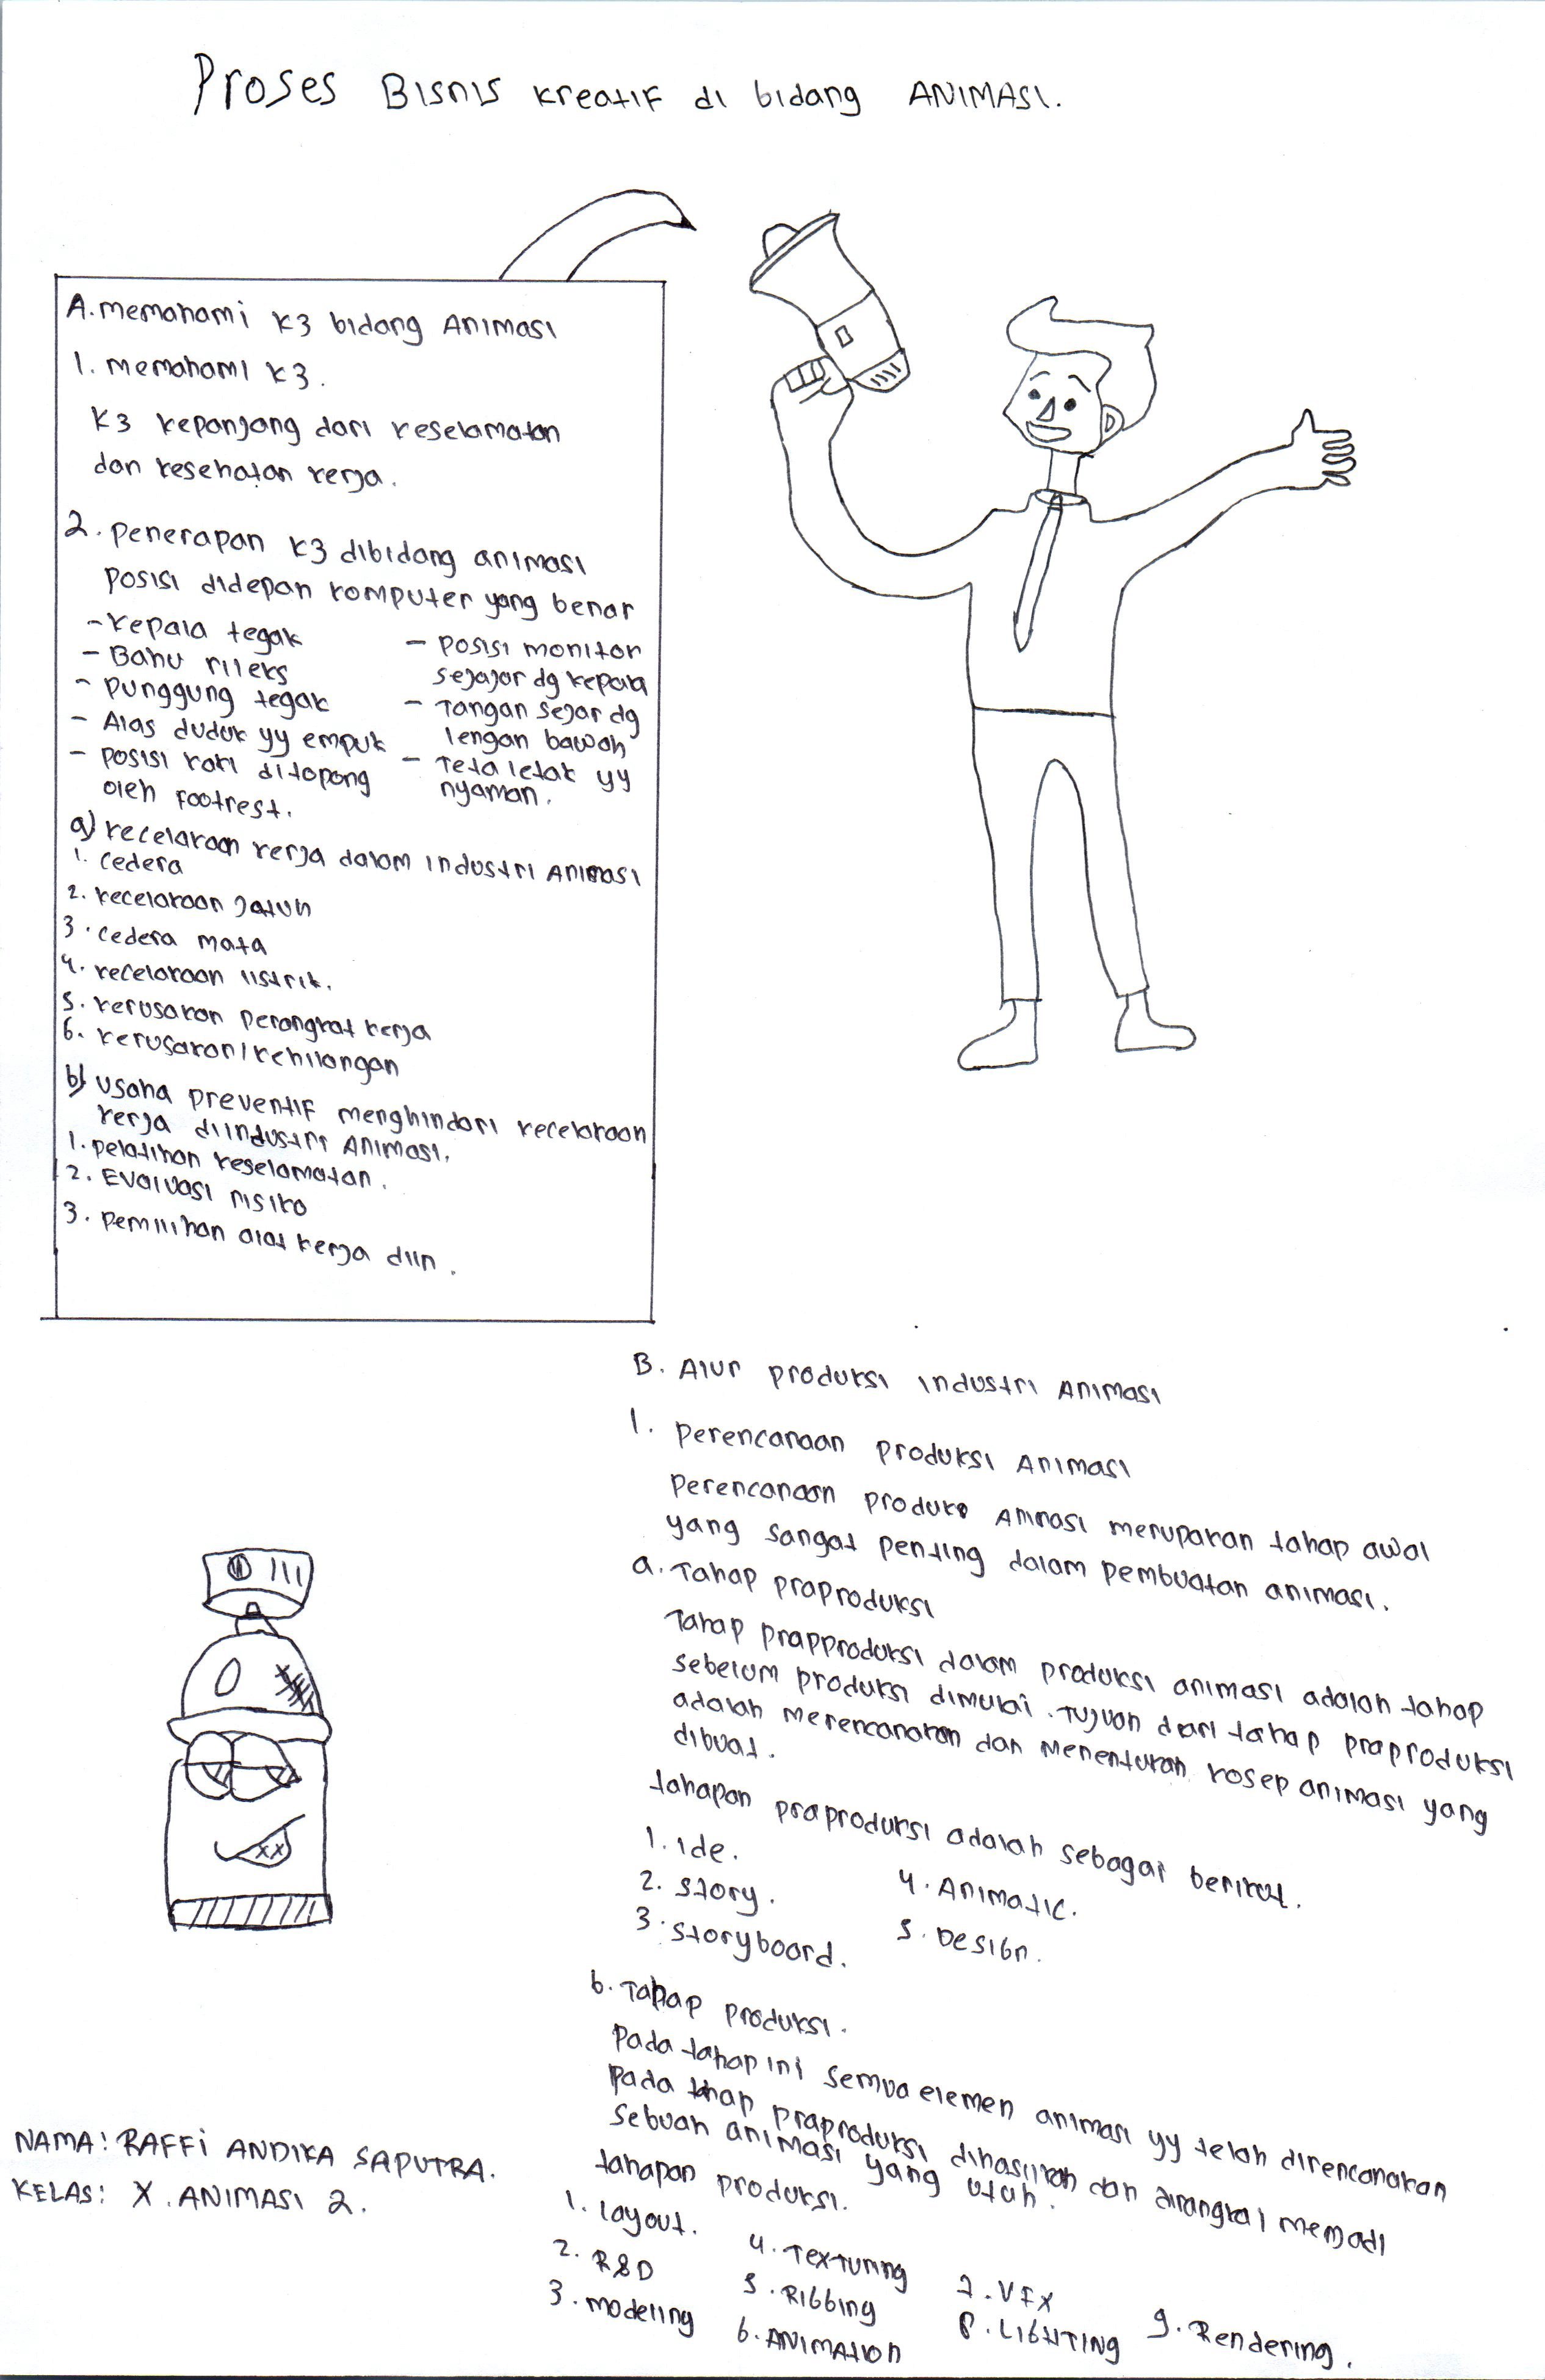 Proses Bisnis kreatif di bidang ANIMASI.
A. memahami K3 bidang Animasi
1. memahami K3.
K3 kepanjang dari keselamatan
dan kesehatan kerja.
2. penerapan K3 dibidang animasi
posisi didepan komputer yang benar
- kepala tegak
- Bahu rileks
- punggung tegak
- Alas duduk yy empuk
- posisi kaki ditopong
oleh footrest.
- posisi monitor
sejajar dg kepala
- Tangan sejar dg
lengan bawah
- Teta letak yy
nyaman.
a) kecelakaan kerja dalam industri Animasi
1. cedera
2. kecelakaan jatuh
3. cedera mata
4. kecelakaan listrik.
5. kerusakan perangkat kerja
6. kerusakan/kehilangan
b) usaha preventif menghindari kecelakaan
kerja diindustri Animasi.
1. pelatihan keselamatan.
2. Evaluasi risiko
3. pemilihan alat kerja diin.
B. Alur produksi industri Animasi
1. perencanaan produksi Animasi
perencanaan produks Animasi merupakan tahap awal
yang sangat penting dalam pembuatan animasi.
a. Tahap praproduksi
Tahap prapproduksi dalam produksi animasi adalah tahap
sebelum produksi dimulai. Tujuan dari tahap praproduksi
adalah merencanakan dan menentukan kosep animasi yang
dibuat.
tahapan praproduksi adalah sebagai berikut.
1. ide.
2. story.
3. storyboard.
4. Animatic.
5. Design.
b. Tahap produksi.
pada tahap ini semua elemen animasi yy telah direncanakan
pada tahap praproduksi dihasilkan dan dirangkai memjadi
sebuah animasi yang utuh.
tahapan produksi.
1. layout.
2. R&D
3. modeling
4. Texturing
5. Ribbing
6. ANIMATION
7. VFX
8. LIGHTING
9. Rendering.
NAMA: RAFFi ANDIKA SAPUTRA.
KELAS: X. ANIMASI 2.